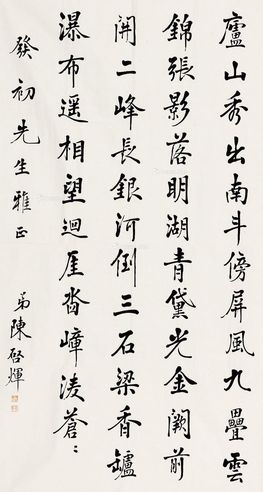 廬山秀出南斗傍屏風九疊雲
錦張影落明湖青黛光金闕前
開二峰長銀河倒三石梁香罏
瀑布遥相望迴厓沓嶂淩蒼〻
發初先生雅正
弟陳啓輝